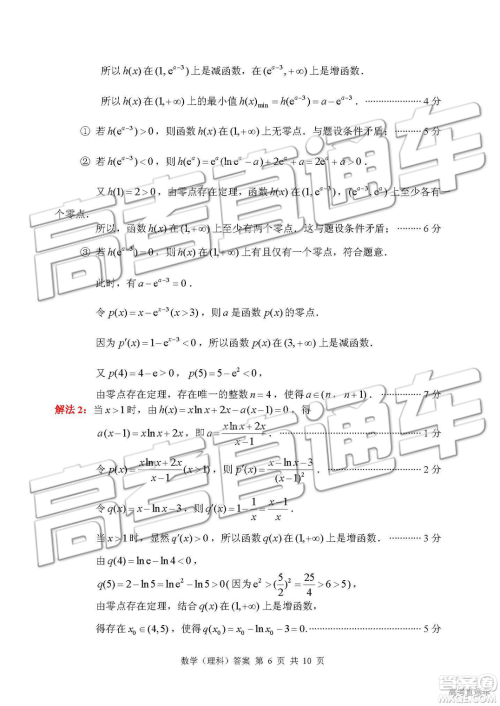 所以h(x)在(1, e^{a-3})上是减函数，在(e^{a-3}, +∞)上是增函数.
所以h(x)在(1,+∞)上的最小值h(x)_{min}=h(e^{a-3})=a-e^{a-3}. ……………… 4 分
① 若h(e^{a-3})>0，则函数h(x)在(1,+∞)上无零点. 与题设条件矛盾；……… 5 分
② 若h(e^{a-3})<0，则h(e^a)=e^a(ln e^a-a)+2e^a+a=2e^a+a>0.
又h(1)=2>0，由零点存在定理，函数h(x)在(1,e^{a-3})，(e^{a-3},e^a)上至少各有
个零点.
所以，函数h(x)在(1,+∞)上至少有两个零点，这与题设条件矛盾；……… 6 分
③ 若h(e^{a-3})=0，则h(x)在(1,+∞)上有且仅有一个零点，符合题意.
此时，有a-e^{a-3}=0.
令p(x)=x-e^{x-3}(x>3)，则a是函数p(x)的零点.
因为p′(x)=1-e^{x-3}<0，所以函数p(x)在(3,+∞)上是减函数.
又p(4)=4-e>0，p(5)=5-e²<0，
由零点存在定理，存在唯一的整数n=4，使得a∈(n, n+1). ……… 7 分
解法2：当x>1时，由h(x)=xln x+2x-a(x-1)=0，得
a(x-1)=xln x+2x，即a=\frac{xln x+2x}{x-1}. ……… 1 分
令p(x)=\frac{xln x+2x}{x-1}(x>1)，则p′(x)=\frac{x-ln x-3}{(x-1)²}. ……… 2 分
令q(x)=x-ln x-3，则q′(x)=1-\frac{1}{x}=\frac{x-1}{x}.
当x>1时，显然q′(x)>0，所以函数q(x)在(1,+∞)上是增函数. ……… 3 分
由q(4)=ln e-ln 4<0，
q(5)=2-ln 5=ln e²-ln 5>0(因为e²>(\frac{5}{2})²=\frac{25}{4}>6>5)，
由零点存在定理，结合q(x)在(1,+∞)上是增函数，
得存在x₀∈(4,5)，使得q(x₀)=x₀-ln x₀-3=0. ……… 5 分
数学（理科）答案 第 6 页 共 10 页
高考直通车